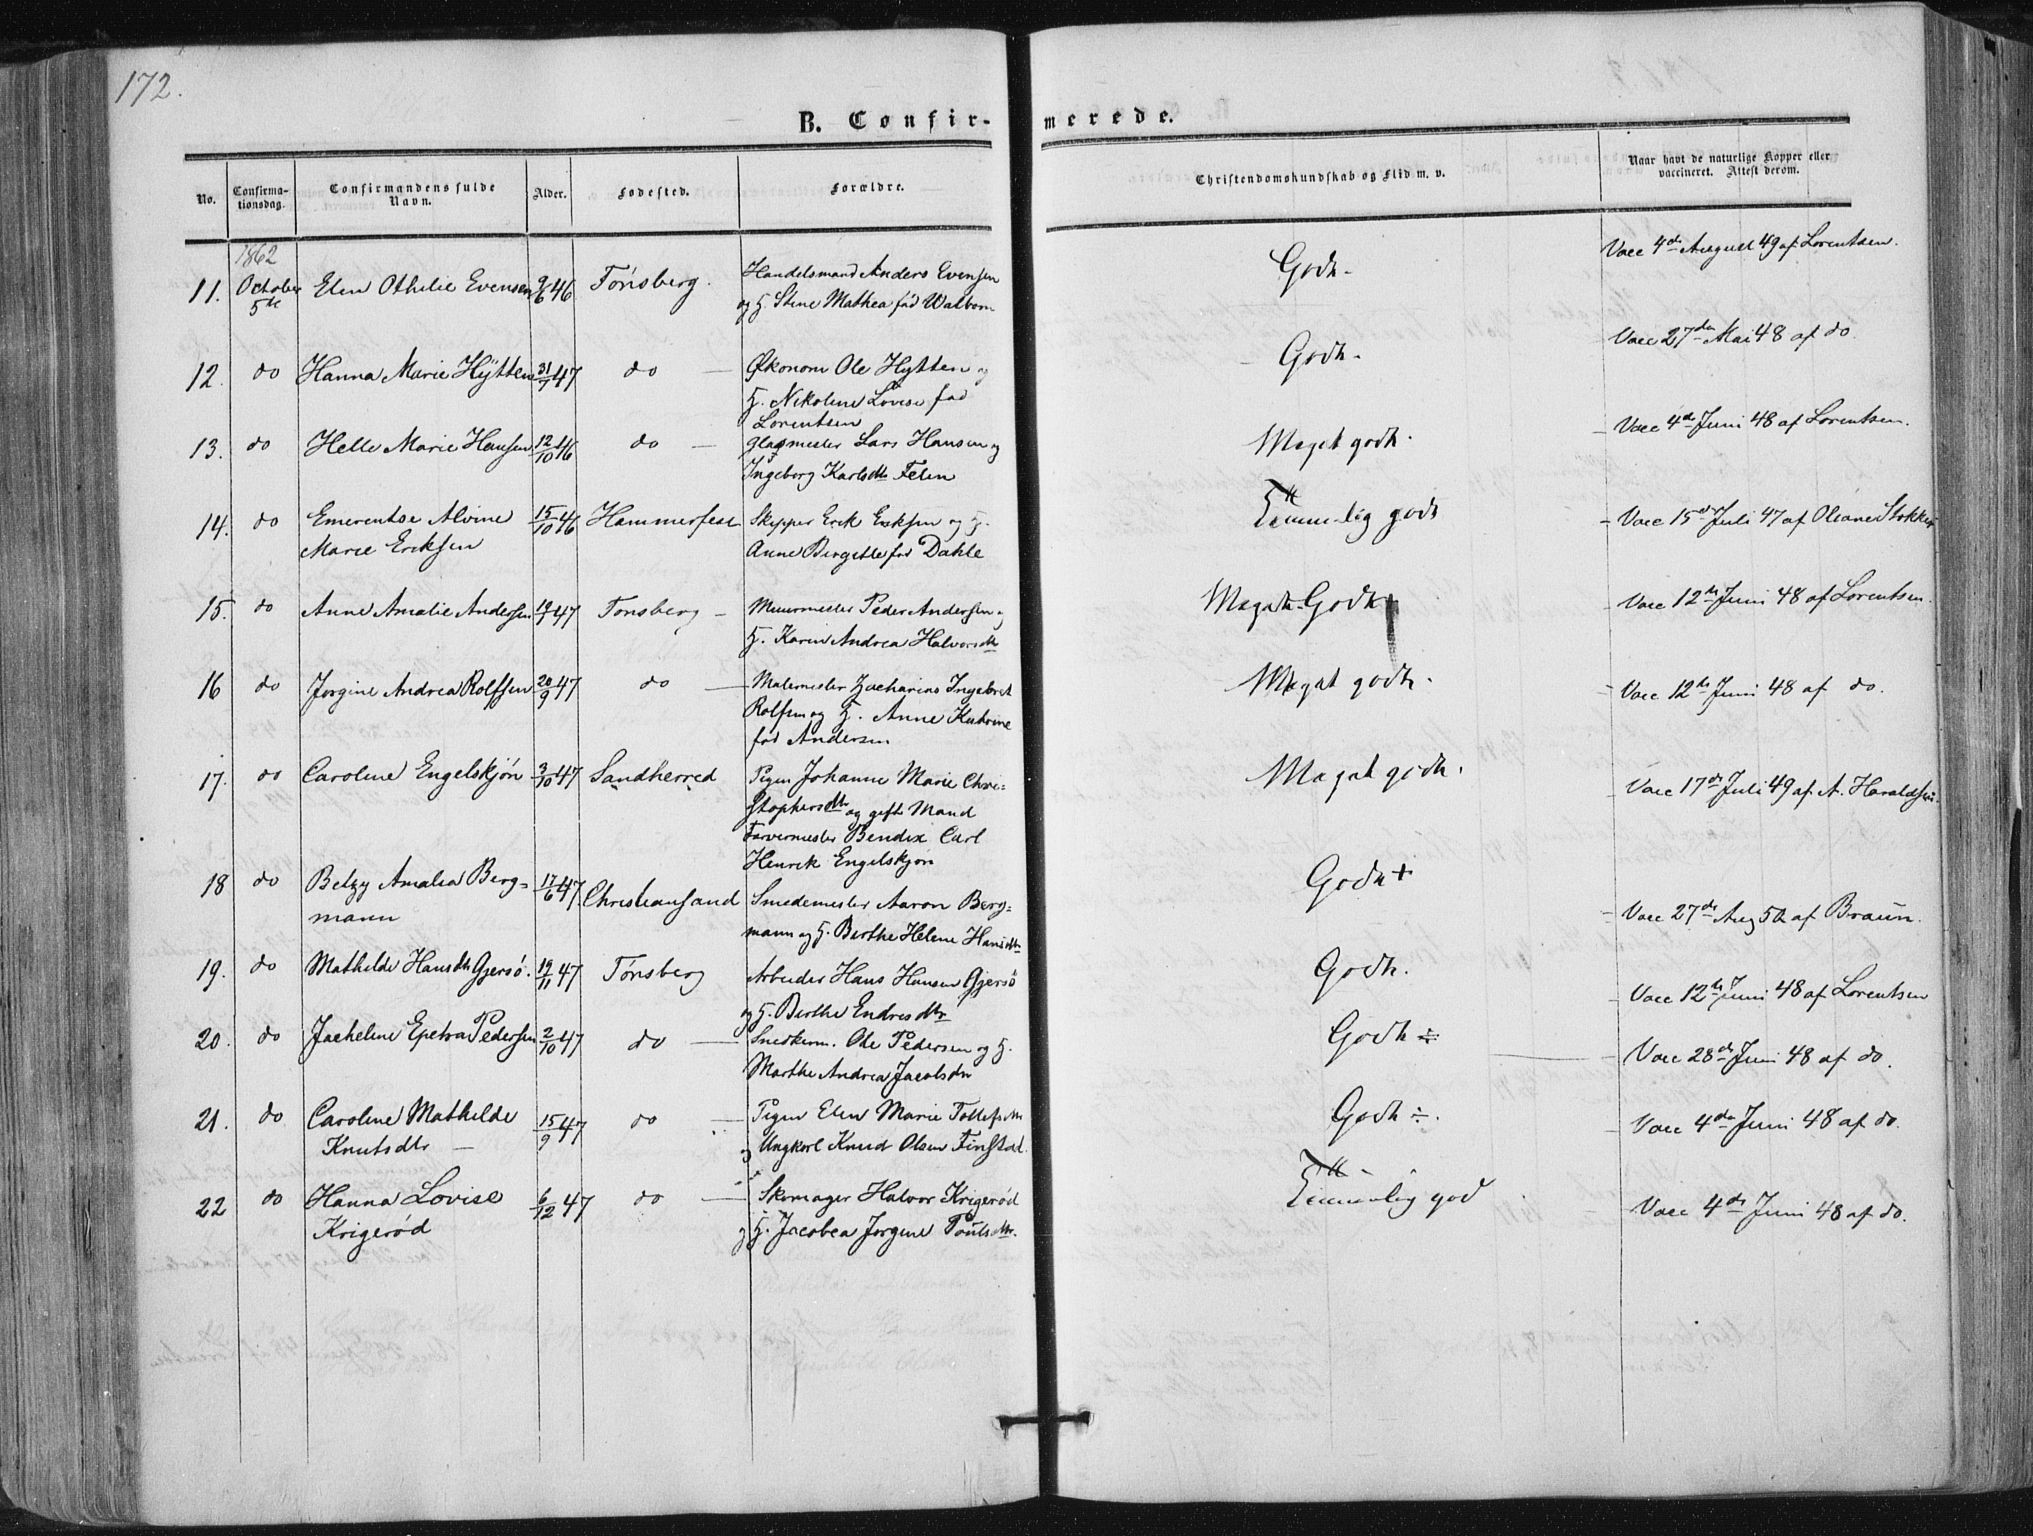 172.
B. Confir-merede.
No.
Confirma-
tionsdag.
Confirmandens fulde
Navn.
Alder.
Fødested.
Forældre.
Christendomskundskab og Flid m. v.
Naar havt de naturlige Kopper eller
vaccineret. Attest derom.
1862
11. October 5te Elen Othilie Evensen 9/6 46 Tønsberg. Handelsmand Anders Evensen Godt- Vacc 4de August 49 af Lorentsen.
og H. Stine Mathea fød Walbom
12. do Hanna Marie Hÿtten 31/7 47 do — Økonom Ole Hÿtten og Godt- Vacc 27de Mai 48 af do.
H. Nikoline Lovise fød
Lorentsen
13. do Helle Marie Hansen 12/10 46 do — Glasmester Lars Hansen og Meget godt. Vacc 4de Juni 48 af Lorentsen.
Ingeborg Karlsdtr Felen
14. do Emerentse Alvine 15/10 46 Hammerfest Skipper Erik Eriksen og H. Temmelig godt Vacc 15de Juli 47 af Oleane Stokke
Marie Eriksen Anne Birgitte fød Dahle
15. do Anne Amalie Andersen 19/7 47 Tønsberg — Muurmester Peder Andersen og Meget Godt Vacc 12te Juni 48 af Lorentsen.
H. Karin Andrea Halvorsdtr
16 do Jorgine Andrea Rolfsen 20/9 47 do — Malermester Zacharias Ingebret Meget godt. Vacc 12te Juni 48 af do.
Rolfsen og H. Anne Kathrine
fød Andersen
17. do Caroline Engelskjøn 3/10 47 Sandherred Pigen Johanne Marie Chri- Meget godt. Vacc 17de Juli 49 af A. Haraldsen.
stophersdtr og gift Mand
Farvermester Bendix Carl
Henrik Engelskjøn
18 do Betzy Amalia Berg= 17/6 47. Christiansand Smedemester Aaron Berg= Godt + Vacc 27de Aug 50 af Braun.
mann mann og H. Birthe Helene Hansdtr
19. do Mathilde Hansdtr Gjersö. 19/11 47 Tønsberg Arbeider Hans Hansen Gjersö Godt. Vacc 12te Juni 48 af Lorentsen
og H. Birthe Endresdtr
20. do Jacheline Epetra Pedersen 2/10 47 do — Snedkerm. Ole Pedersen og H. Godt ÷ Vacc 28de Juni 48 af do.
Marthe Andrea Jacobsdtr
21. do Caroline Mathilde 15/9 47 do — Pigen Elen Marie Tollefsdtr Godt ÷. Vacc 4de Juni 48 af do.
Knutsdtr — og Ungkarl Knud Olsen Finstad.
22 do Hanna Lovise 6/12 47 do — Skomager Halvor Krigerød Temmelig god Vacc 4de Juni 48 af do.
Krigerød og H. Jacobea Jorgine Poulsdtr.